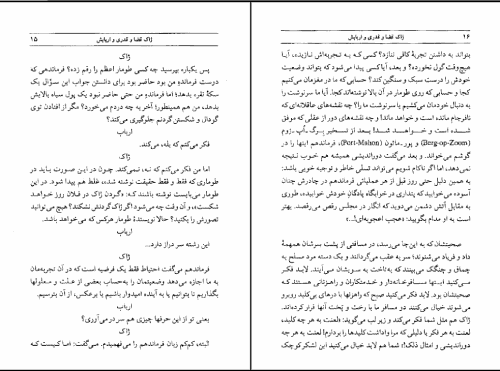 ژاک قضا و قدری و اربابش ۱۵
ژاک
پس یکباره بپرسید چه کسی طومار اعظم را رقم زده؟ فرماندهی که
درست فرماندهِ من بود حاضر بود برای دانستن جواب این سؤال یک
سکهٔ نقره بدهد؛ اما فرماندهٔ من حتی حاضر نبود یک پول سیاه بالایش
بدهد، من هم همینطور؛ آخر به چه دردم می‌خورد؟ مگر از افتادن توی
گودال و شکستن گردنم جلوگیری می‌کند؟
ارباب
فکر می‌کنم که بله، می‌کند.
ژاک
اما من فکر می‌کنم که نه، نمی‌کند. چون در این صورت باید در
طوماری که فقط و فقط حقیقت نوشته شده، غلط هم پیدا شود. در این
طومار می‌بایست نوشته باشند که: «گردن ژاک در فلان روز خواهد
شکست»، و آن وقت چه می‌شود اگر ژاک گردنش نشکند؟ هیچ می‌توانید
تصورش را بکنید؟ حالا نویسندهٔ طومار هرکس که می‌خواهد باشد.
ارباب
این رشته سر دراز دارد...
ژاک
فرماندهم می‌گفت احتیاط فقط یک فرضیه است که در آن تجربه‌مان
به ما اجازه می‌دهد وضعیتمان را به‌حساب بعضی از علت و معلولها
بگذاریم تا بتوانیم یا به آینده امیدوار باشیم یا برعکس، از آن بترسیم.
ارباب
یعنی تو از این حرفها چیزی هم سر در می‌آوری؟
ژاک
البته، کم‌کم زبان فرماندهم را می‌فهمیدم. می‌گفت: اما کیست که
۱۶ ژاک قضا و قدری و اربابش
بتواند به داشتن تجربهٔ کافی بنازد؟ کسی که به تجربه‌اش نازیده، آیا
هیچ‌وقت گول نخورده؟ و بعد، آیا کسی پیدا می‌شود که بتواند وضعیت
خودش را درست سبک و سنگین کند؟ حسابی که ما در مغزمان می‌کنیم
کجا و حسابی که روی طومار در آن بالا نوشته‌اند کجا. آیا ما سرنوشت را
به دنبال خودمان می‌کشیم یا سرنوشت ما را؟ چه نقشه‌های عاقلانه‌ای که
نافرجام مانده است و خواهد ماند! و چه نقشه‌های دور از عقلی که موفق
شده است و خواهد شد! بعد از تسخیر برگ ـ اُپ ـ زوم
(Berg-op-Zoom) و پور ـ ماتون (Port-Mahon)، فرماندهم اینها را در
گوشم می‌خواند. و بعد می‌گفت دوراندیشی همیشه هم خوب نتیجه
نمی‌دهد، اما اگر ناکام شویم می‌تواند تسلی خاطر و توجیه خوبی باشد؛
به همین دلیل حتی روز قبل از هر عملیاتی فرماندهم در چادرش چنان
آسوده می‌خوابید که پنداری در خوابگاه پادگان خودش خوابیده، طوری
به مقابل آتش دشمن می‌دوید که انگار در مجلس رقص می‌رقصد. بهتر
است به او مدام بگویید: «عجب اعجوبه‌ای!...»
صحبتشان که به این‌جا می‌رسد، در مسافتی از پشت سرشان همهمهٔ
داد و فریاد می‌شنوند؛ سر به عقب می‌گردانند و یک دسته مرد مسلح به
چماق و چنگک می‌بینند که به‌تاخت به سویشان می‌آیند. لابد فکر
می‌کنید اینها مسافرخانه‌دار و خدمتکاران و راهزنانی هستند که
صحبتشان بود. لابد فکر می‌کنید صبح که راهزنها با درهای بی‌کلید روبرو
می‌شوند خیال می‌کنند دو مسافر ما با رخت و پخت آنها فرار کرده‌اند.
ژاک هم مثل شما فکر می‌کند و زیر لب می‌گوید: لعنت به هر چه کلید،
لعنت به هر فکر یا دلیلی که مرا واداشت کلیدها را بردارم! لعنت به هر چه
دوراندیشی و امثال ذلک!؛ شما هم لابد خیال می‌کنید این لشکر کوچک